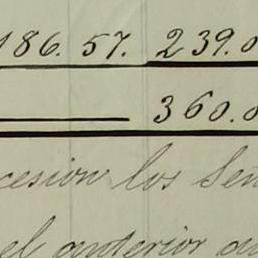 186. 57. 239.0
360.0
cesion los Señ
el anterior au